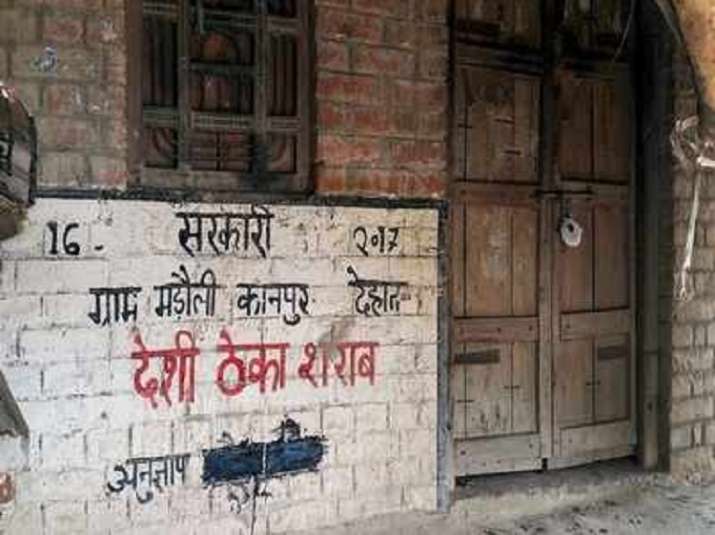 16 - सरकारी २०१७
ग्राम मड़ौली कानपुर देहात
देशी ठेका शराब
अनुज्ञाप